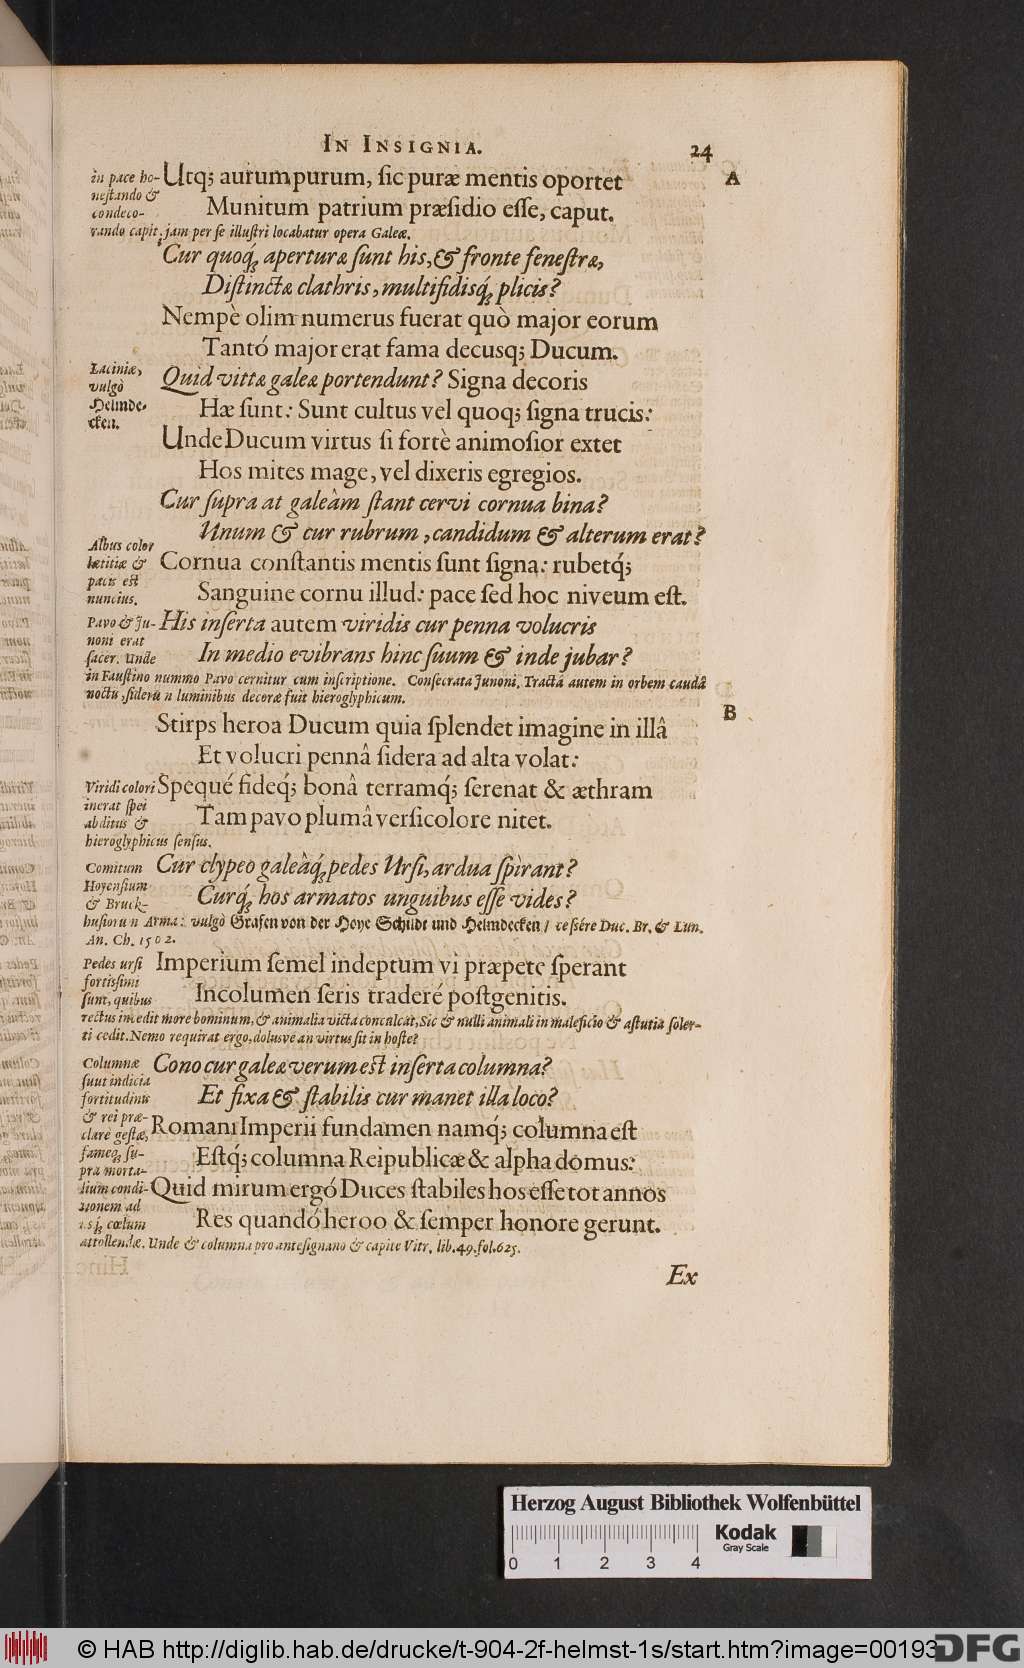 IN INSIGNIA. 24
in pace ho-
nestando &
condeco-
rando capit, jam per se illustri locabatur opera Galeæ.
Utq; aurum purum, sic puræ mentis oportet
A
Munitum patrium præsidio esse, caput.
Cur quoq; aperturæ sunt his, & fronte fenestræ,
Distinctæ clathris, multifidisq; plicis?
Nempè olim numerus fuerat quò major eorum
Tantó major erat fama decusq; Ducum.
Laciniæ,
vulgò
Helmde-
cken.
Quid vittæ galeæ portendunt? Signa decoris
Hæ sunt: Sunt cultus vel quoq; signa trucis:
Unde Ducum virtus si fortè animosior extet
Hos mites mage, vel dixeris egregios.
Cur supra at galeàm stant cervi cornua bina?
Unum & cur rubrum, candidum & alterum erat?
Albus color
lætitiæ &
pacis est
nuncius.
Cornua constantis mentis sunt signa: rubetq;
Sanguine cornu illud: pace sed hoc niveum est.
Pavo & Ju-
noni erat
sacer. Unde
in Faustino nummo Pavo cernitur cum inscriptione. Consecrata Junoni. Tractâ autem in orbem caudâ
noctu, siderum luminibus decoræ fuit hieroglyphicum.
His inserta autem viridis cur penna volucris
In medio evibrans hinc suum & inde jubar?
B
Stirps heroa Ducum quia splendet imagine in illâ
Et volucri pennâ sidera ad alta volat:
Viridi colori
inerat spei
abditus &
hieroglyphicus sensus.
Spequé fideq; bonâ terramq; serenat & æthram
Tam pavo plumâ versicolore nitet.
Comitum
Hoyensium
& Bruck-
husiorum Arma: vulgò Grafen von der Hoye Schildt und Helmdecken / cessére Duc. Br. & Lun.
An. Ch. 1502.
Cur clypeo galeàq; pedes Ursi, ardua spìrant?
Curq; hos armatos unguibus esse vides?
Pedes ursi
fortissimi
sunt, quibus
rectus incedit more hominum, & animalia victa conculcat, Sic & nulli animali in maleficio & astutia soler-
ti cedit. Nemo requirat ergo, dolusve an virtus sit in hoste?
Imperium semel indeptum vi præpete sperant
Incolumen seris traderé postgenitis.
Columnæ
sunt indicia
fortitudinis
& rei præ-
claré gestæ,
fameq; su-
pra morta-
lium condi-
tionem ad
cœlum
attollendæ. Unde & columna pro antesignano & capite Vitr. lib. 49. fol. 625.
Cono cur galeæ verum est inserta columna?
Et fixa & stabilis cur manet illa loco?
Romani Imperii fundamen namq; columna est
Estq; columna Reipublicæ & alpha domus:
Quid mirum ergó Duces stabiles hos esse tot annos
Res quandó heroo & semper honore gerunt.
Ex
Herzog August Bibliothek Wolfenbüttel
0 1 2 3 4
Kodak
Gray Scale
© HAB http://diglib.hab.de/drucke/t-904-2f-helmst-1s/start.htm?image=00193
DFG